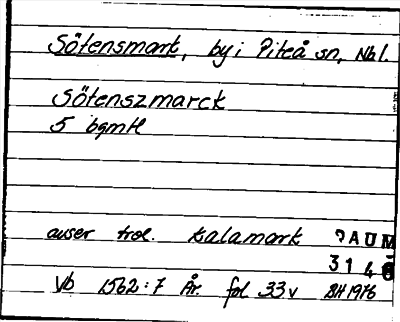 Sötensmark, by i Piteå sn, Nbl.
Sötenszmarck
5 bgmtl
avser trol. Kalamark DAUM
314
Vb 1562:7 År. fol 33v BH 1976